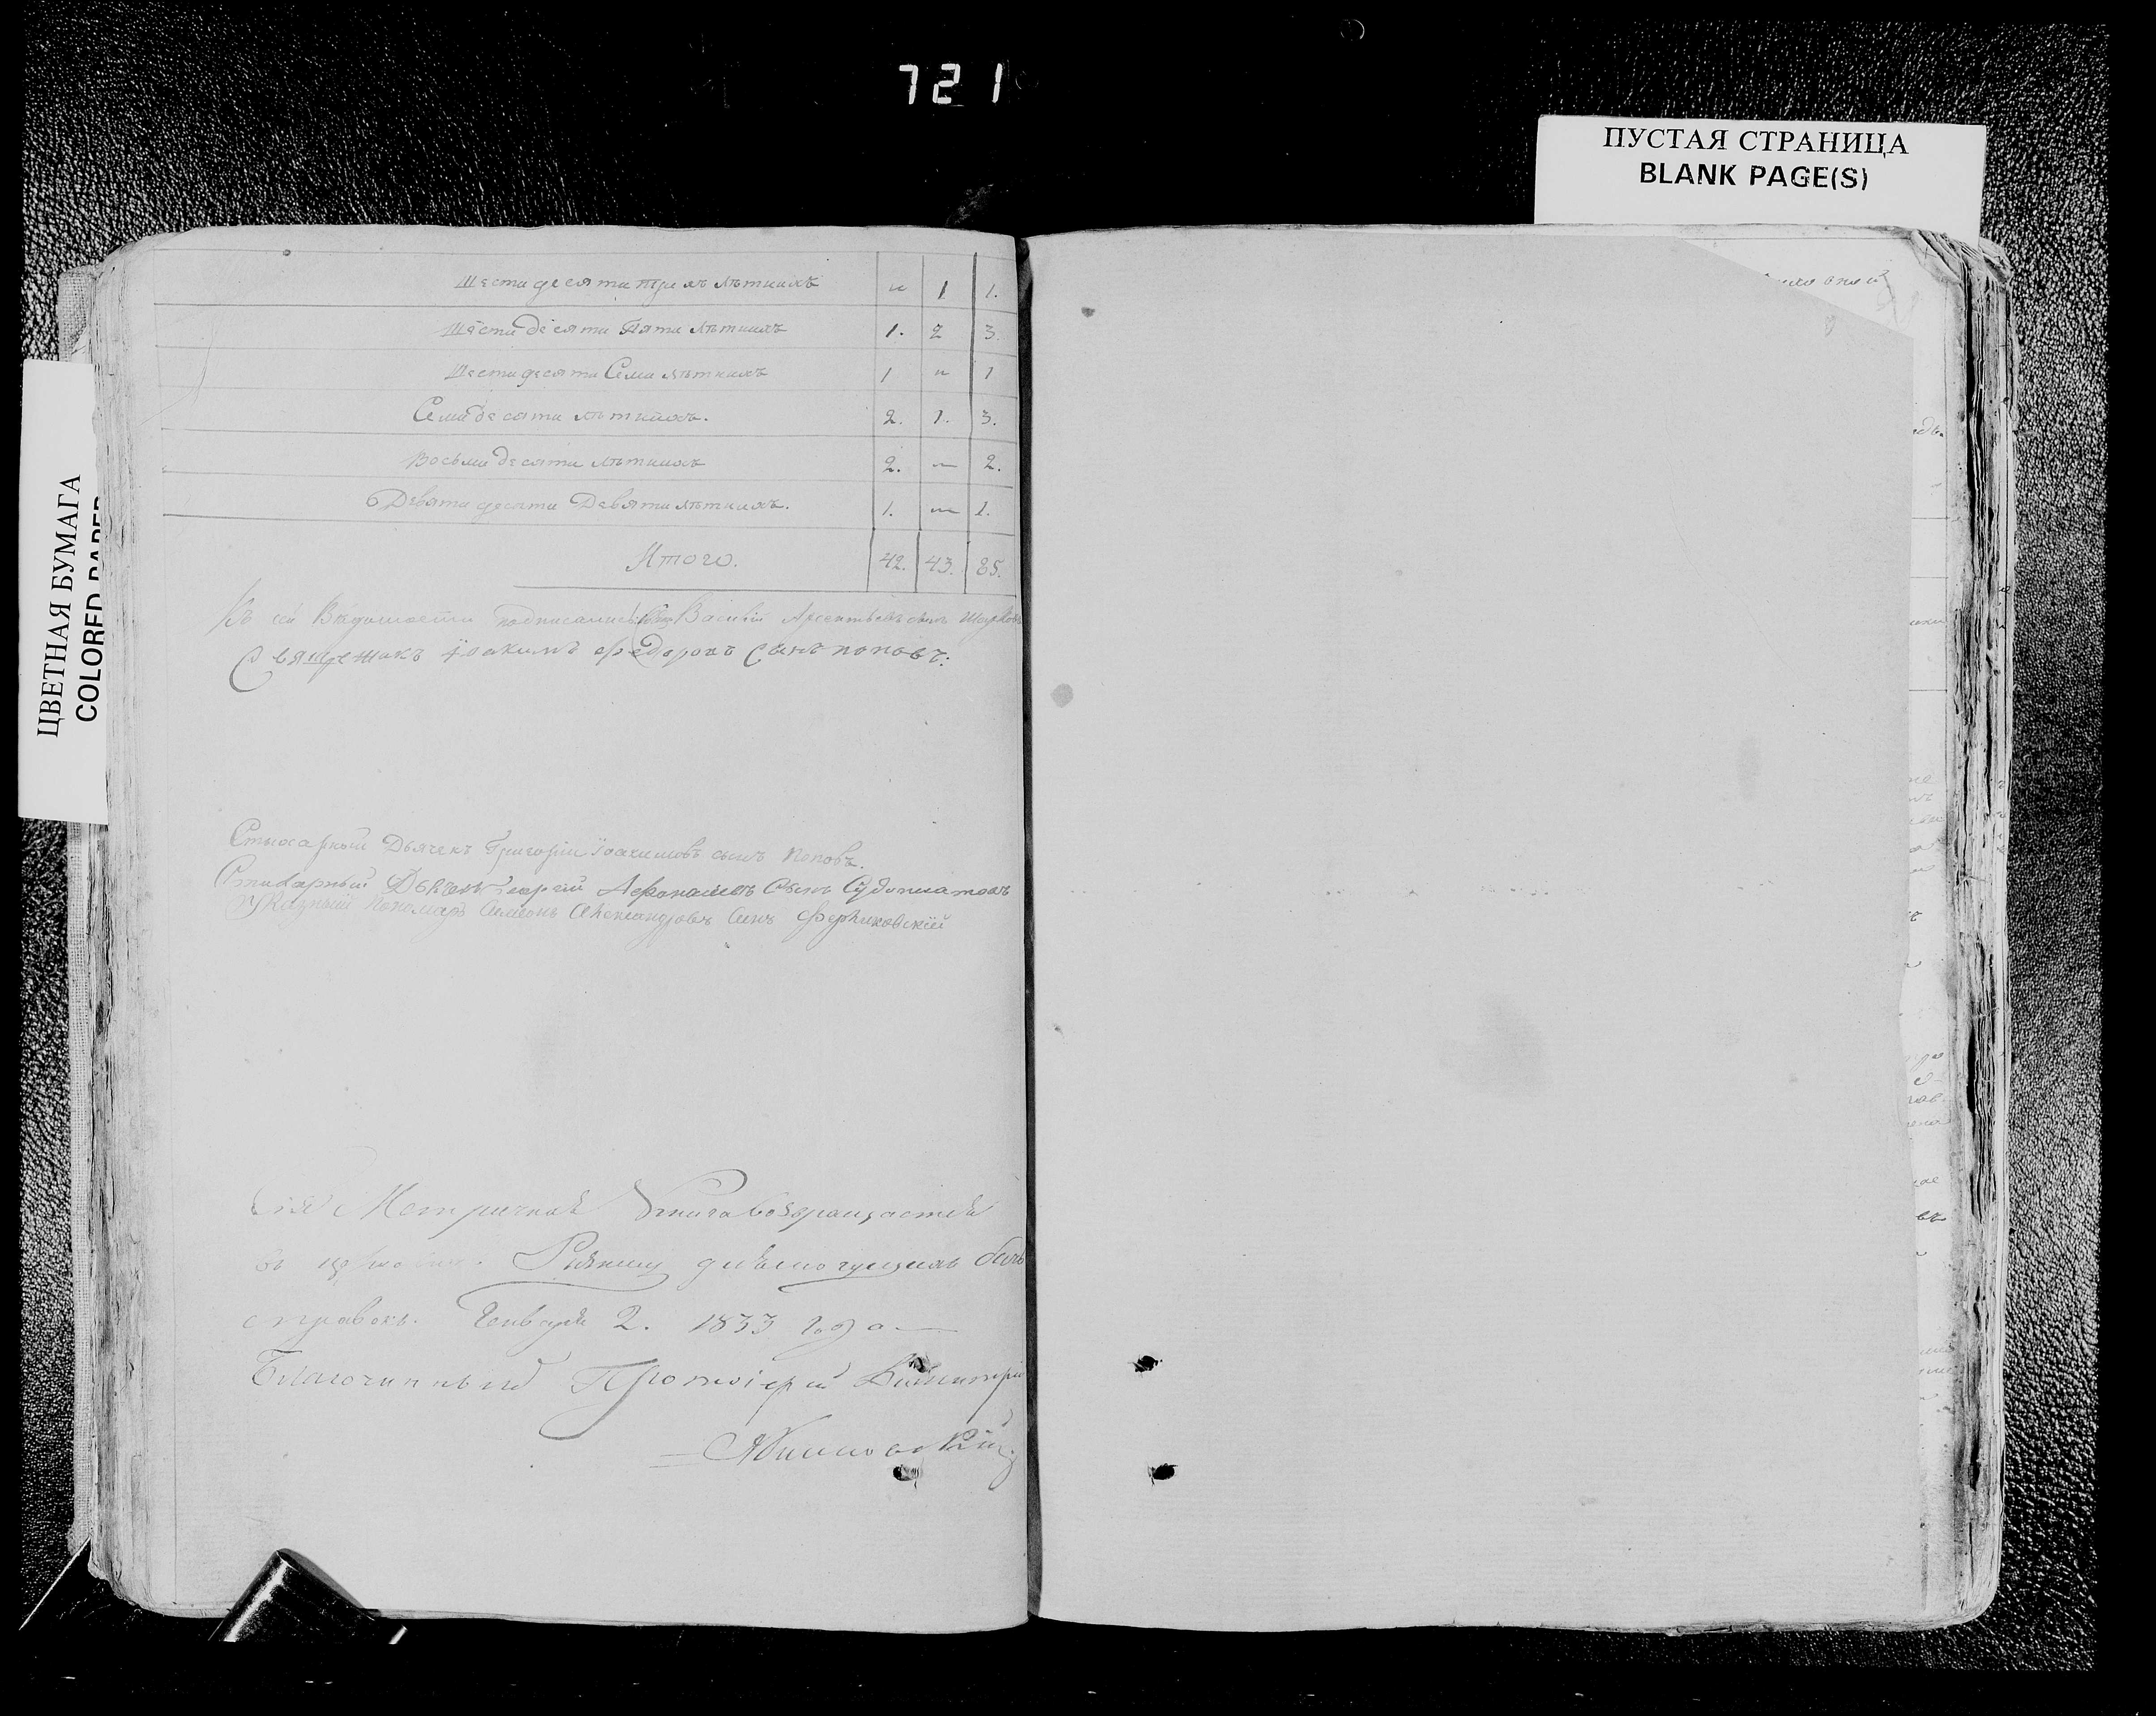 721
ПУСТАЯ СТРАНИЦА
BLANK PAGE(S)
ЦВЕТНАЯ БУМАГА
COLORED PAPER
Шестидесяти трехъ лѣтнихъ " 1 1.
Шестидесяти Пяти лѣтнихъ 1. 2 3.
Шестидесяти Семи лѣтнихъ 1 " 1
Семидесяти лѣтнихъ. 2. 1. 3.
Восьмидесяти лѣтнихъ 2. — 2.
Девятидесяти Девяти лѣтнихъ. 1. — 1.
Итого. 42. 43. 85.
Къ сей Вѣдомости подписались Василій сынъ
Священикъ Іоакимъ Федоровъ сынъ поповъ:
Стихарный Дьячекъ Григорій Іоакимовъ сынъ Поповъ.
Стихарный Дьячекъ Георгій Афонасіевъ Сынъ
Указный Пономарь Симеонъ Александровъ Сынъ
Сія Метричная Книга возвращается
въ Ряжину для могущихъ быть
справокъ. Генваря 2. 1833 года
Благочинный Протоіерей Димитрій